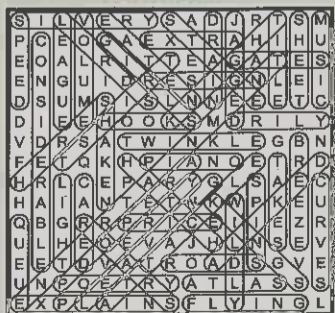 SILVERYSADJRTSM
PCEOGAEXTRAHIHU
EOALRITTEAGATES
ENGUIDRESIGNLEI
DSUMSISLNNEEETC
DIEEHOOKSMDRILY
VDRSATWINKLEGBN
FETQKHPIANOETRD
HRLCEPARYGLSAEC
HAIANTETWKWPKEU
QUGRRPRICEIIIZR
ULHEOEVAJHLNSEV
EETDVATROADSGVE
UNPOETRYATLASSS
EXPLAINSFLYINGL